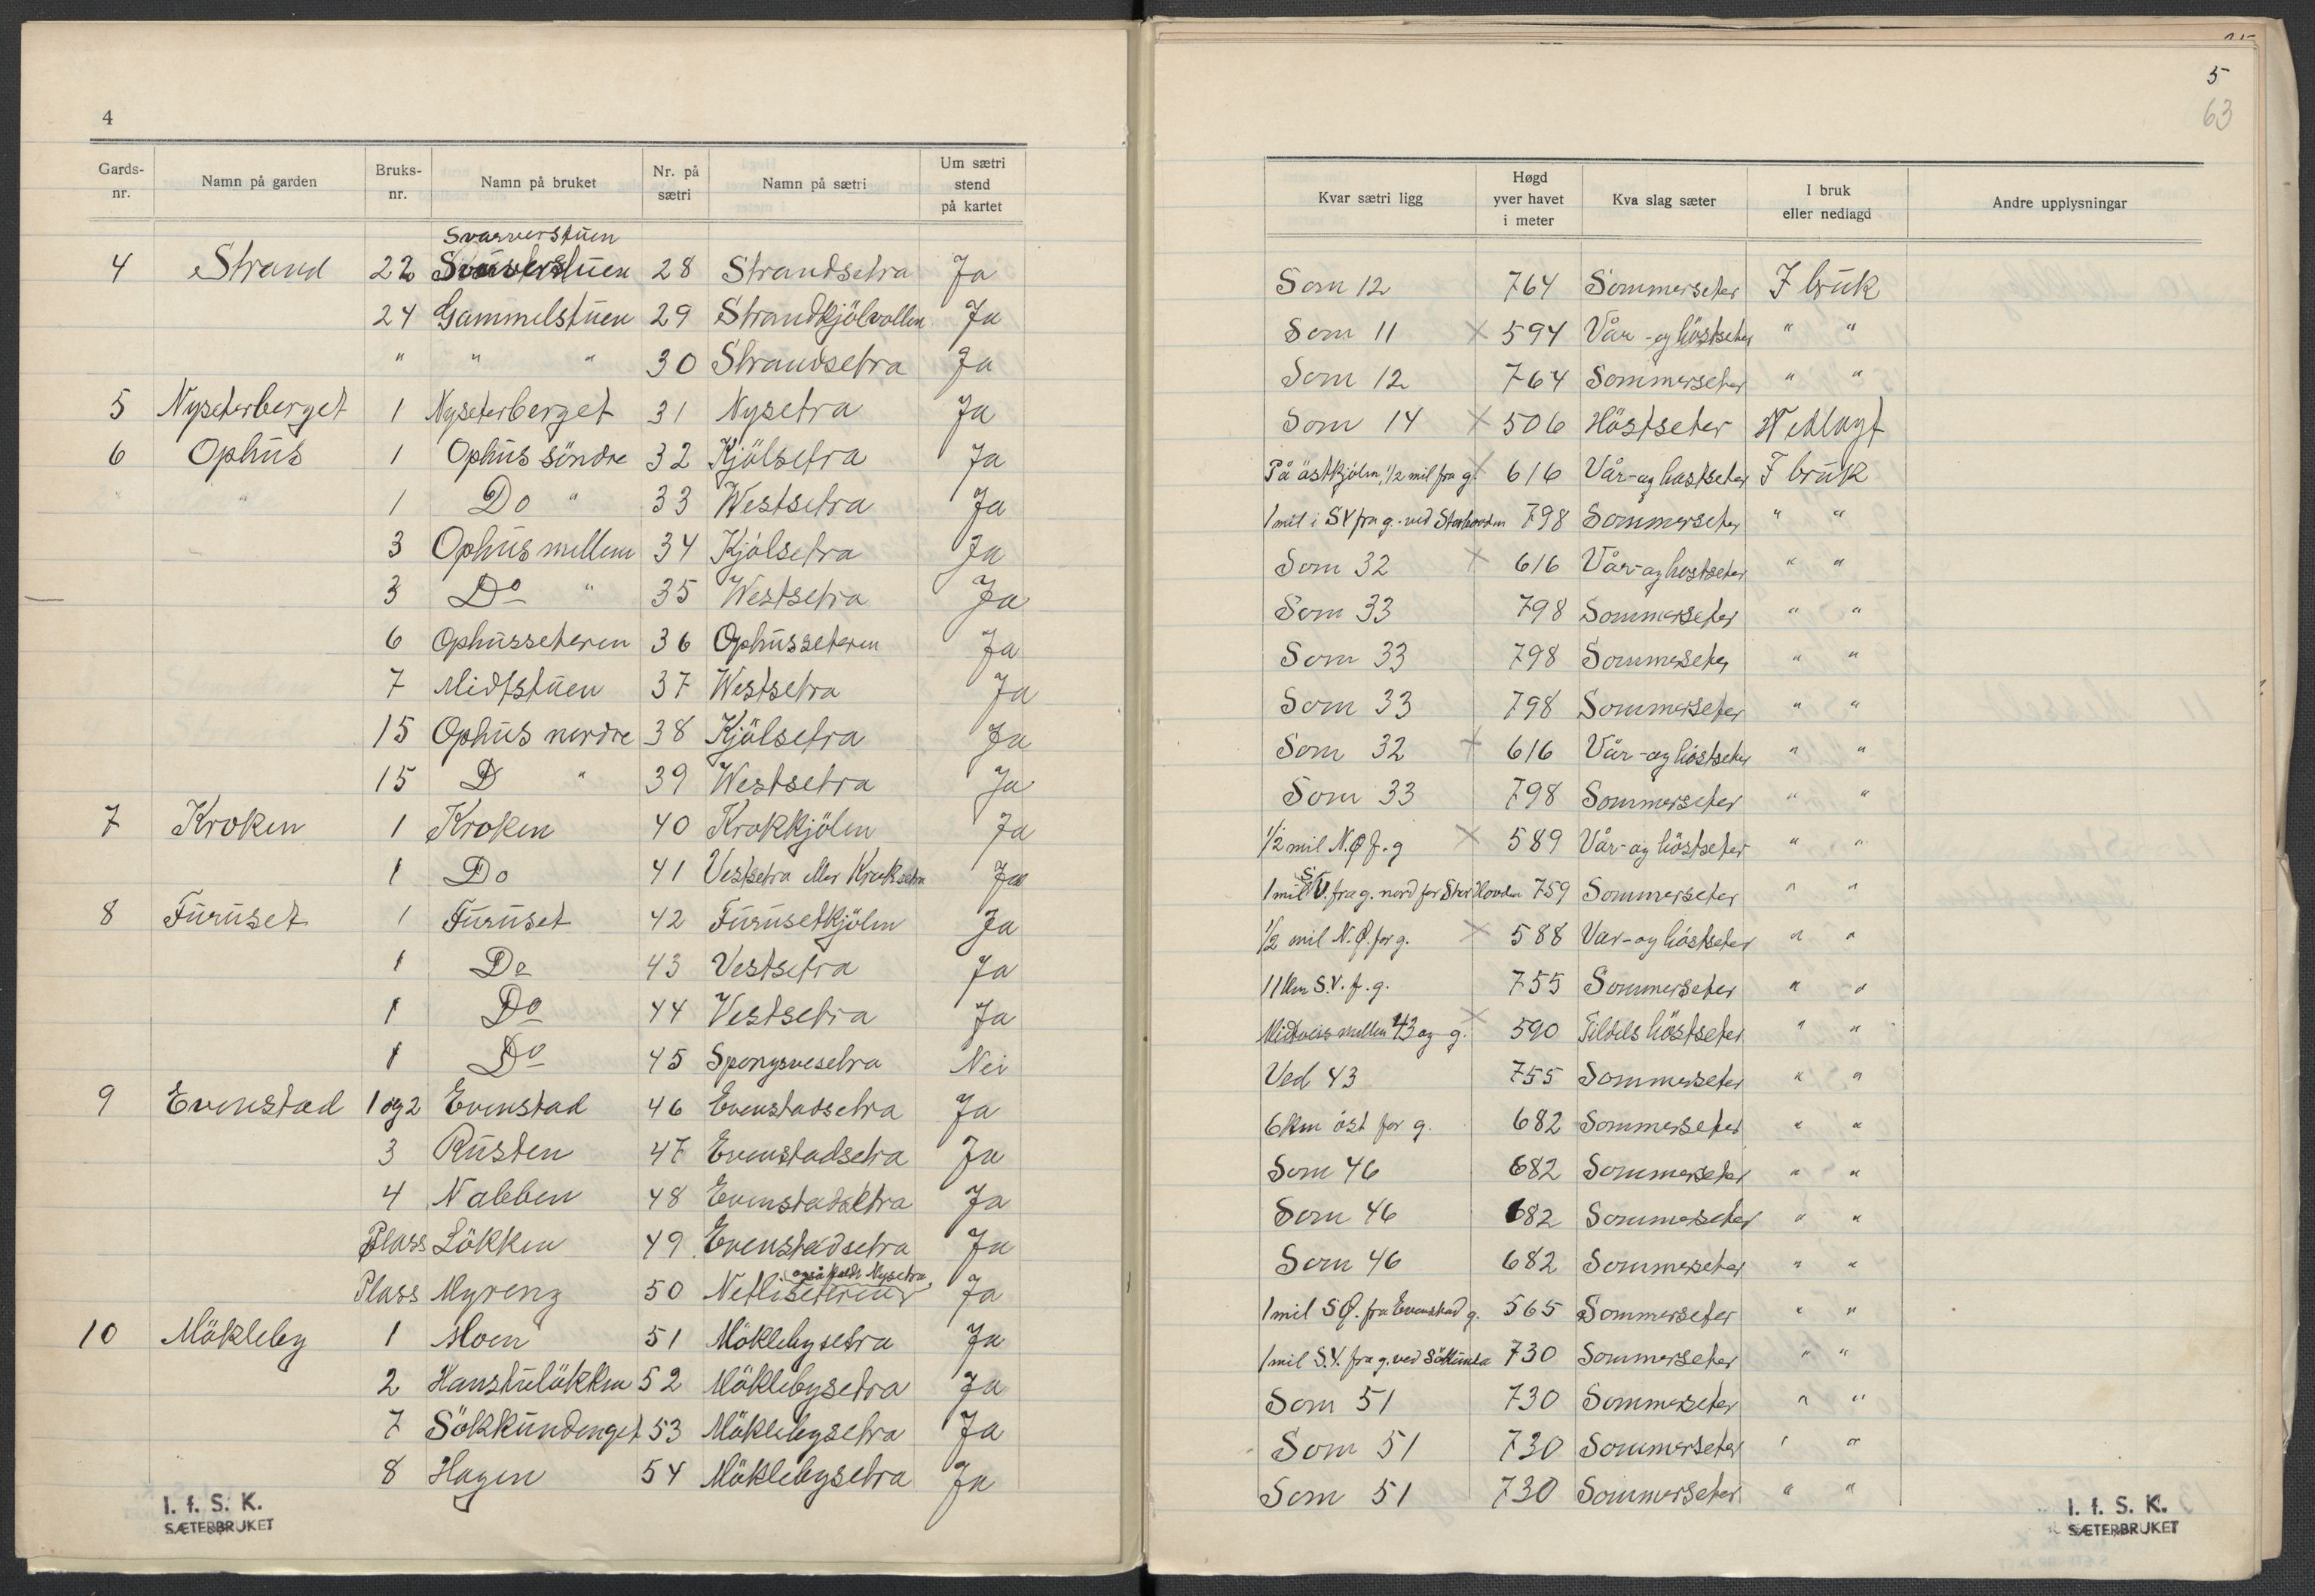 4
Gards-nr. Namn på garden Bruks-nr. Namn på bruket Nr. på sætri Namn på sætri Um sætri stend på kartet
Svarverstuen
4 Strand 22 28 Strandsetra Ja
24 Gammelstuen 29 Strandkjölvollen Ja
" " " 30 Strandsetra Ja
5 Nyseterberget 1 Nyseterberget 31 Nysetra Ja
6 Ophus 1 Ophus söndre 32 Kjölsetra Ja
" " 1 Do " 33 Westsetra Ja
3 Ophus mellem 34 Kjölsetra Ja
3 Do " 35 Westsetra Ja
6 Ophusseteren 36 Ophusseteren Ja
7 Midtstuen 37 Westsetra Ja
15 Ophus nordre 38 Kjölsetra Ja
15 D " 39 Westsetra Ja
7 Kroken 1 Kroken 40 Krokkjölen Ja
1 Do 41 Vestsetra eller Kroksetra Ja
8 Furuset 1 Furuset 42 Furusetkjölen Ja
1 Do 43 Vestsetra Ja
1 Do 44 Vestsetra Ja
1 Do 45 Nei
9 Evenstad 1 og 2 Evenstad 46 Evenstadsetra Ja
3 Rusten 47 Evenstadsetra Ja
4 Nabben 48 Evenstadsetra Ja
Plass Lökken 49 Evenstadsetra Ja
også kaldt Nysetra
Plass Myreng 50 Ja
10 Mökleby 1 Moen 51 Möklebysetra Ja
2 Hanstulökken 52 Möklebysetra Ja
7 Sökkundenget 53 Möklebysetra Ja
8 Hagen 54 Möklebysetra Ja
I. f. S. K.
SÆTERBRUKET
5
63
Kvar sætri ligg Høgd yver havet i meter Kva slag sæter I bruk eller nedlagd Andre upplysningar
Som 12 764 Sommerseter I bruk
Som 11 × 594 Vår-og höstseter " "
Som 12 764 Sommerseter " "
Som 14 × 506 Höstseter Nedlagt
På östkjölen, 1/2 mil fra g. × 616 Vår-og höstseter I bruk
1 mil i SV fra g. ved Storhovden 798 Sommerseter " "
Som 32 × 616 Vår-og höstseter " "
Som 33 798 Sommerseter " "
Som 33 798 Sommerseter " "
Som 33 798 Sommerseter " "
Som 32 × 616 Vår-og höstseter " "
Som 33 798 Sommerseter " "
1/2 mil N.Ø f. g × 589 Vår-og höstseter " "
1 mil S.V. fra g. nord for Storhovden 759 Sommerseter " "
1/2 mil N.Ø. for g. × 588 Vår-og höstseter " "
11 km S.V. f. g. 755 Sommerseter " "
Midtveis mellem 43 og g. × 590 Tildels höstseter " "
Ved 43 755 Sommerseter " "
6 km öst for g. 682 Sommerseter " "
Som 46 682 Sommerseter " "
Som 46 682 Sommerseter " "
Som 46 682 Sommerseter " "
1 mil S.Ø. fra Evenstad g. 565 Sommerseter " "
1 mil S.V. fra g. ved Sökkunda 730 Sommerseter " "
Som 51 730 Sommerseter " "
Som 51 730 Sommerseter " "
Som 51 730 Sommerseter " "
I. f. S. K.
SÆTERBRUKET